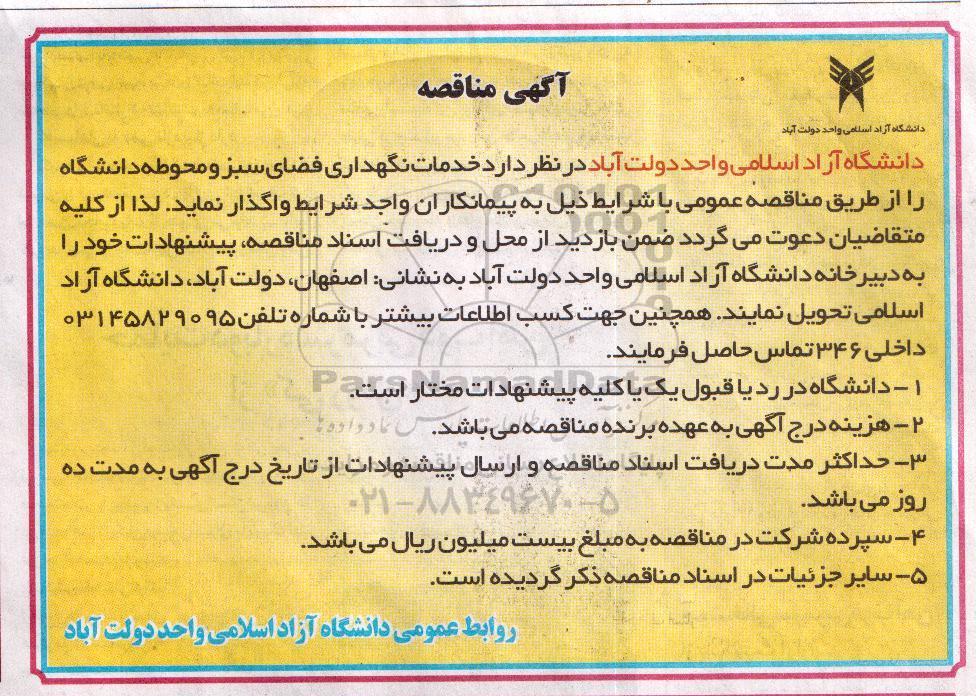 آگهی مناقصه
دانشگاه آزاد اسلامی واحد دولت آباد
دانشگاه آزاد اسلامی واحد دولت آباد در نظر دارد خدمات نگهداری فضای سبز و محوطه دانشگاه
را از طریق مناقصه عمومی با شرایط ذیل به پیمانکاران واجد شرایط واگذار نماید. لذا از کلیه
متقاضیان دعوت می گردد ضمن بازدید از محل و دریافت اسناد مناقصه، پیشنهادات خود را
به دبیرخانه دانشگاه آزاد اسلامی واحد دولت آباد به نشانی: اصفهان، دولت آباد، دانشگاه آزاد
اسلامی تحویل نمایند. همچنین جهت کسب اطلاعات بیشتر با شماره تلفن ۰۳۱۴۵۸۲۹۰۹۵
داخلی ۳۴۶ تماس حاصل فرمایند.
۱- دانشگاه در رد یا قبول یک یا کلیه پیشنهادات مختار است.
۲- هزینه درج آگهی به عهده برنده مناقصه می باشد.
۳- حداکثر مدت دریافت اسناد مناقصه و ارسال پیشنهادات از تاریخ درج آگهی به مدت ده
روز می باشد.
۴- سپرده شرکت در مناقصه به مبلغ بیست میلیون ریال می باشد.
۵- سایر جزئیات در اسناد مناقصه ذکر گردیده است.
روابط عمومی دانشگاه آزاد اسلامی واحد دولت آباد
ParsNamadData
۰۲۱-۸۸۳۴۹۶۷۰-۵